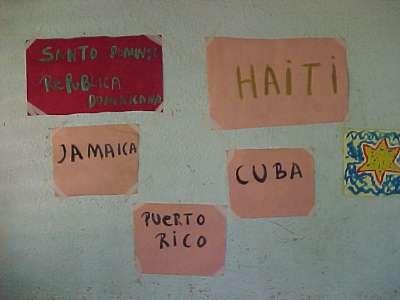 SANTO DOMINGO
REPUBLICA
DOMINICANA
HAITI
JAMAICA
CUBA
PUERTO
RICO